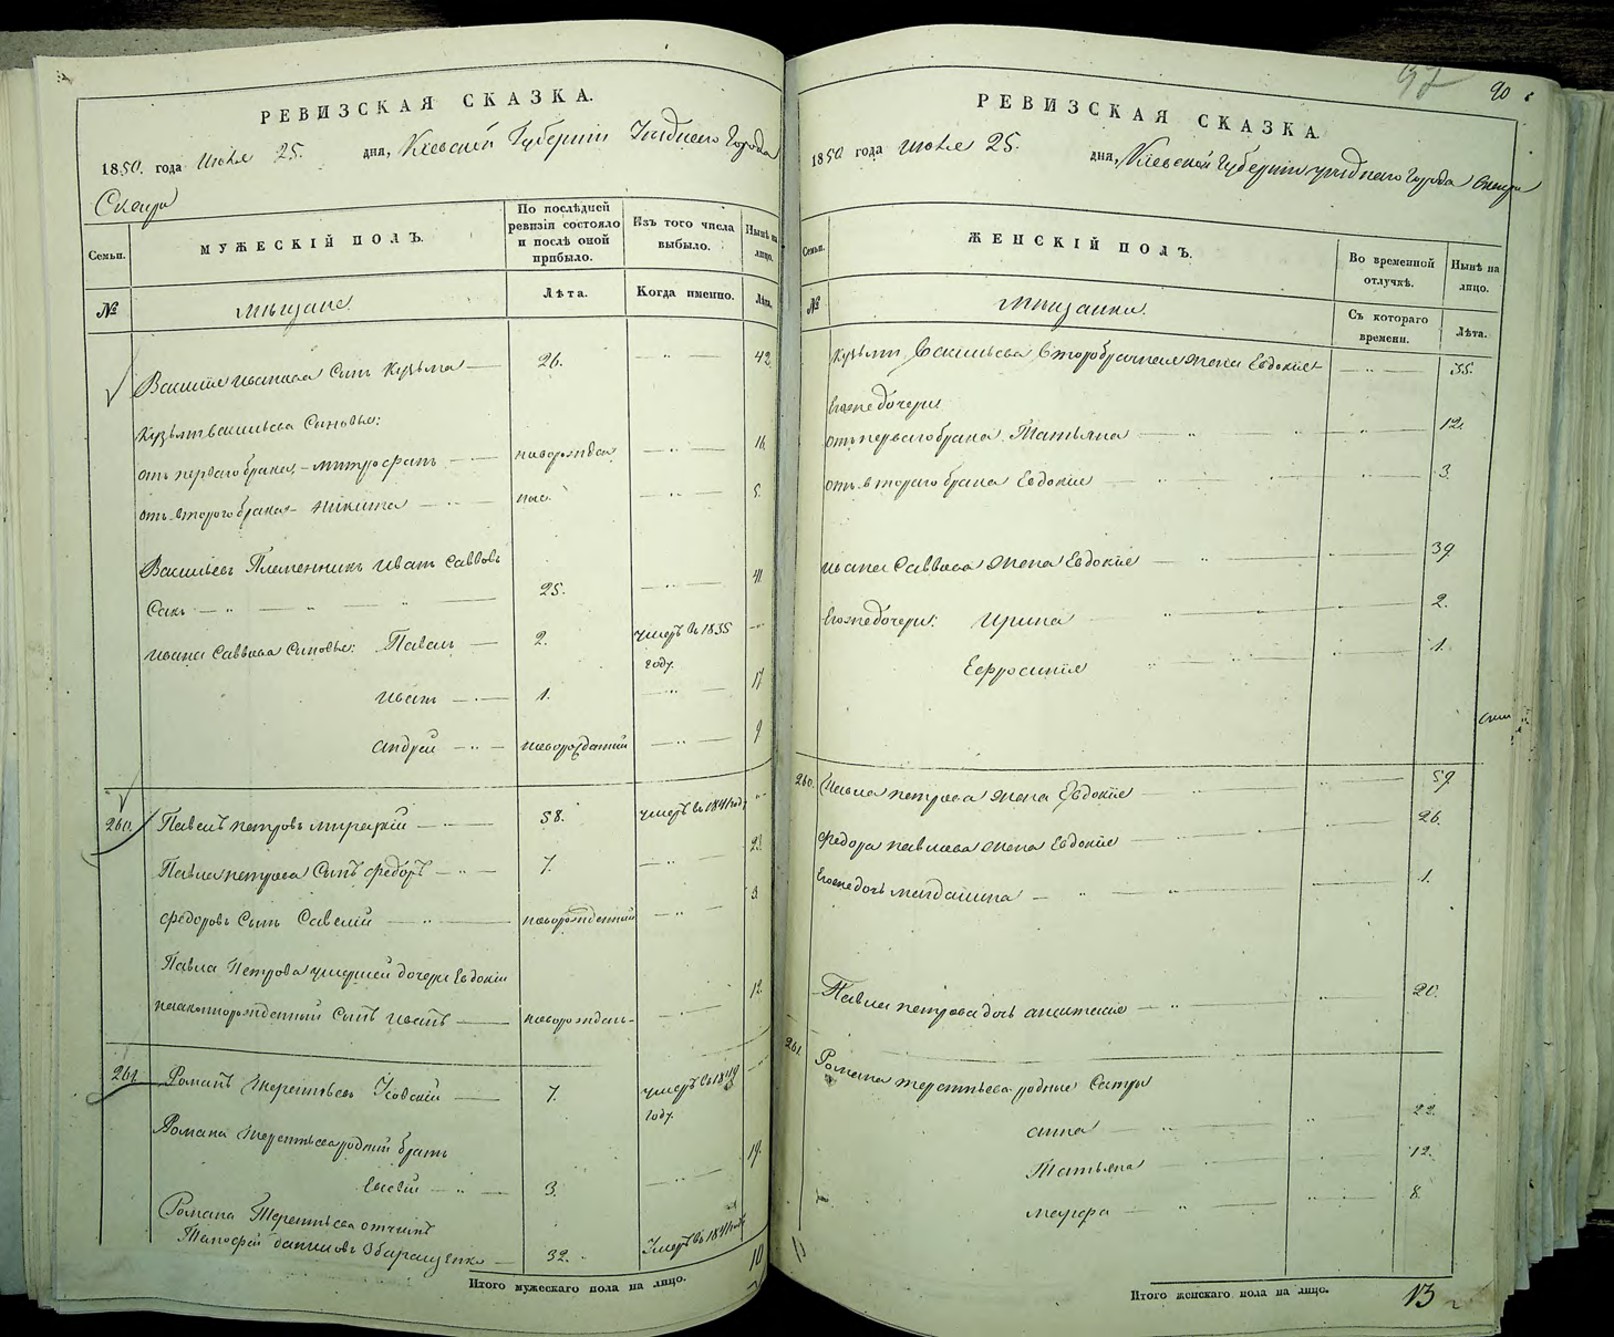 РЕВИЗСКАЯ СКАЗКА.
1850. года Июля 25. дня, Кіевской Губерніи Уѣзднаго Города
Сквиры
Семьи. МУЖЕСКІЙ ПОЛЪ. По послѣдней ревизіи состояло и послѣ оной прибыло. Изъ того числа выбыло. Нынѣ на лицо.
№ Мѣщане. Лѣта. Когда именно. Лѣта.
Василія Иванова Сынъ Кузьма 26. 42.
Кузьмы Васильева Сыновья:
отъ перваго брака, - Митрофанъ новорожден 16.
отъ втораго брака - Никита 5.
Васильевъ Племенникъ Иванъ Саввовъ
Сакъ 25. 41.
Ивана Саввова Сыновья: Павелъ 2. умеръ въ 1835
году.
Иванъ 1. 17.
Андрей новорожденный 9
260. Павелъ Петровъ Мирецкій 58. умеръ въ 1841 году
Павла Петрова Сынъ Федоръ 7. 23.
Федоровъ Сынъ Савелій новорожденный 3.
Павла Петрова умершей дочери Евдокіи
незаконнорожденный Сынъ Иванъ новорожден- 12.
261. Романъ Терентьевъ Усовскій 7. умеръ въ 1849
году.
Романа Терентьева родный братъ
Евсевій 3. 19.
Романа Терентьева отчимъ
Даниловъ 32. Умеръ въ 1841 году
Итого мужескаго пола на лицо. 10
97 90
РЕВИЗСКАЯ СКАЗКА.
1850 года Июля 25. дня, Кіевской Губерніи Уѣзднаго Города Сквиры
Семьи. ЖЕНСКІЙ ПОЛЪ. Во временной отлучкѣ. Нынѣ на лицо.
№ Мѣщанки. Съ котораго времени. Лѣта.
Кузьмы Васильева Второбрачная жена Евдокія 35.
Егоже дочери
отъ перваго брака Татьяна 12.
отъ втораго брака Евдокія 3.
Ивана Саввова жена Евдокія 39.
Егоже дочери: Ирина 2.
Ефросинія 1.
260. Павла Петрова жена Евдокія 59.
Федора Павлова жена Евдокія 26.
Егоже дочь Магдалина 1.
Павла Петрова дочь Анастасія 20.
261. Романа Терентьева родныя Сестры
Анна 22.
Татьяна 12.
Марфа 8.
Итого женскаго пола на лицо. 13